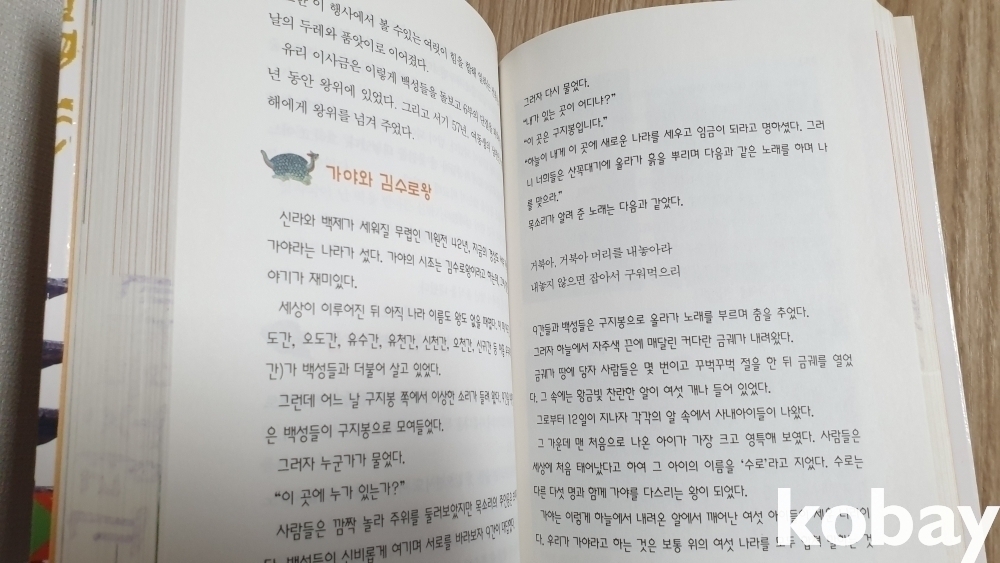 이 행사에서 볼 수있는 여럿이 힘을 합해
날의 두레와 품앗이로 이어졌다.
유리 이사금은 이렇게 백성들을 돌보고 6부의
년 동안 왕위에 있었다. 그리고 서기 57년,
해에게 왕위를 넘겨 주었다.
가야와 김수로왕
신라와 백제가 세워질 무렵인 기원전 42년, 지금의
가야라는 나라가 섰다. 가야의 시초는 김수로왕이라고 하는데,
야기가 재미있다.
세상이 이루어진 뒤 아직 나라 이름도 왕도 없을 때였다.
도간, 오도간, 유수간, 유천간, 신천간, 오천간, 신귀간 등
간)가 백성들과 더불어 살고 있었다.
그런데 어느 날 구지봉 쪽에서 이상한 소리가 들려 왔다.
은 백성들이 구지봉으로 모여들었다.
그러자 누군가가 물었다.
“이 곳에 누가 있는가?”
사람들은 깜짝 놀라 주위를 둘러보았지만 목소리의 주인공은
다. 백성들이 신비롭게 여기며 서로를 바라보자 9간이
그러자 다시 물었다.
“내가 있는 곳이 어디냐?”
“이 곳은 구지봉입니다.”
“하늘이 내게 이 곳에 새로운 나라를 세우고 임금이 되라고 명하셨다. 그러
니 너희들은 산꼭대기에 올라가 흙을 뿌리며 다음과 같은 노래를 하며 나
를 맞으라.”
목소리가 알려 준 노래는 다음과 같았다.
거북아, 거북아 머리를 내놓아라
내놓지 않으면 잡아서 구워먹으리
9간들과 백성들은 구지봉으로 올라가 노래를 부르며 춤을 추었다.
그러자 하늘에서 자주색 끈에 매달린 커다란 금궤가 내려왔다.
금궤가 땅에 닿자 사람들은 몇 번이고 꾸벅꾸벅 절을 한 뒤 금궤를 열었
다. 그 속에는 황금빛 찬란한 알이 여섯 개나 들어 있었다.
그로부터 12일이 지나자 각각의 알 속에서 사내아이들이 나왔다.
그 가운데 맨 처음으로 나온 아이가 가장 크고 영특해 보였다. 사람들은
세상에 처음 태어났다고 하여 그 아이의 이름을 ‘수로’라고 지었다. 수로는
다른 다섯 명과 함께 가야를 다스리는 왕이 되었다.
가야는 이렇게 하늘에서 내려온 알에서 깨어난 여섯
다. 우리가 가야라고 하는 것은 보통 위의 여섯 나라를 모두
kobay